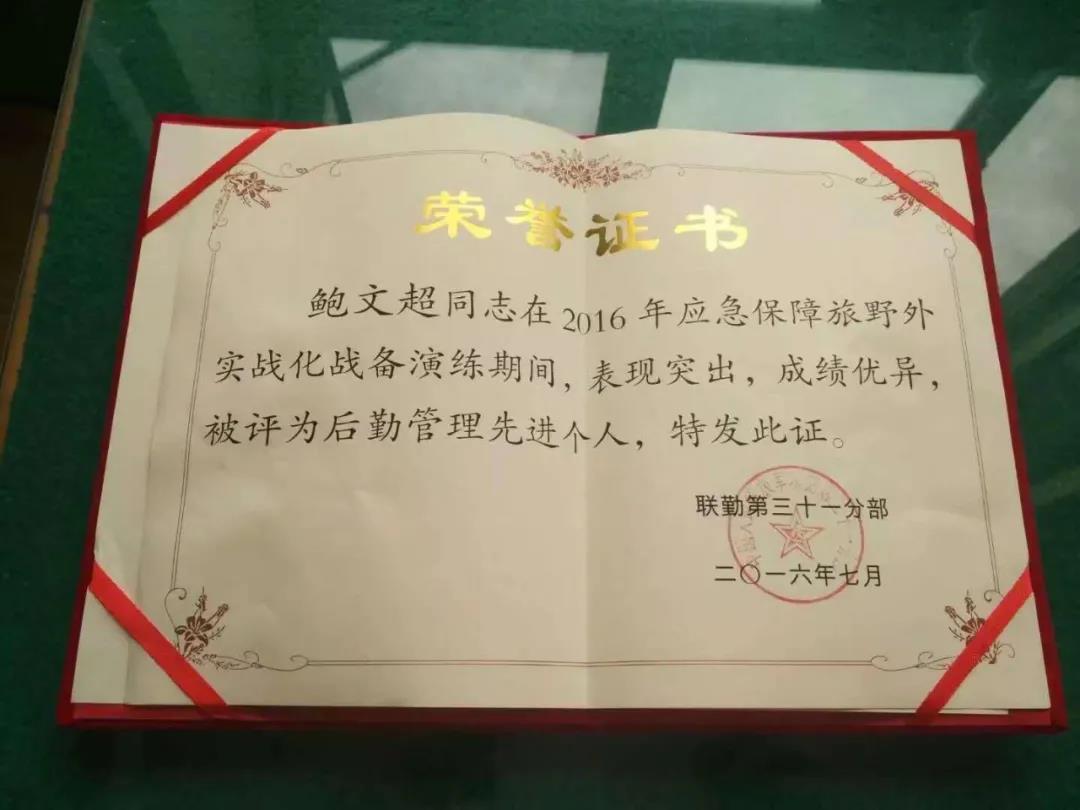 荣誉证书
鲍文超同志在2016年应急保障旅野外
实战化战备演练期间，表现突出，成绩优异，
被评为后勤管理先进个人，特发此证。
联勤第三十一分部
二〇一六年七月